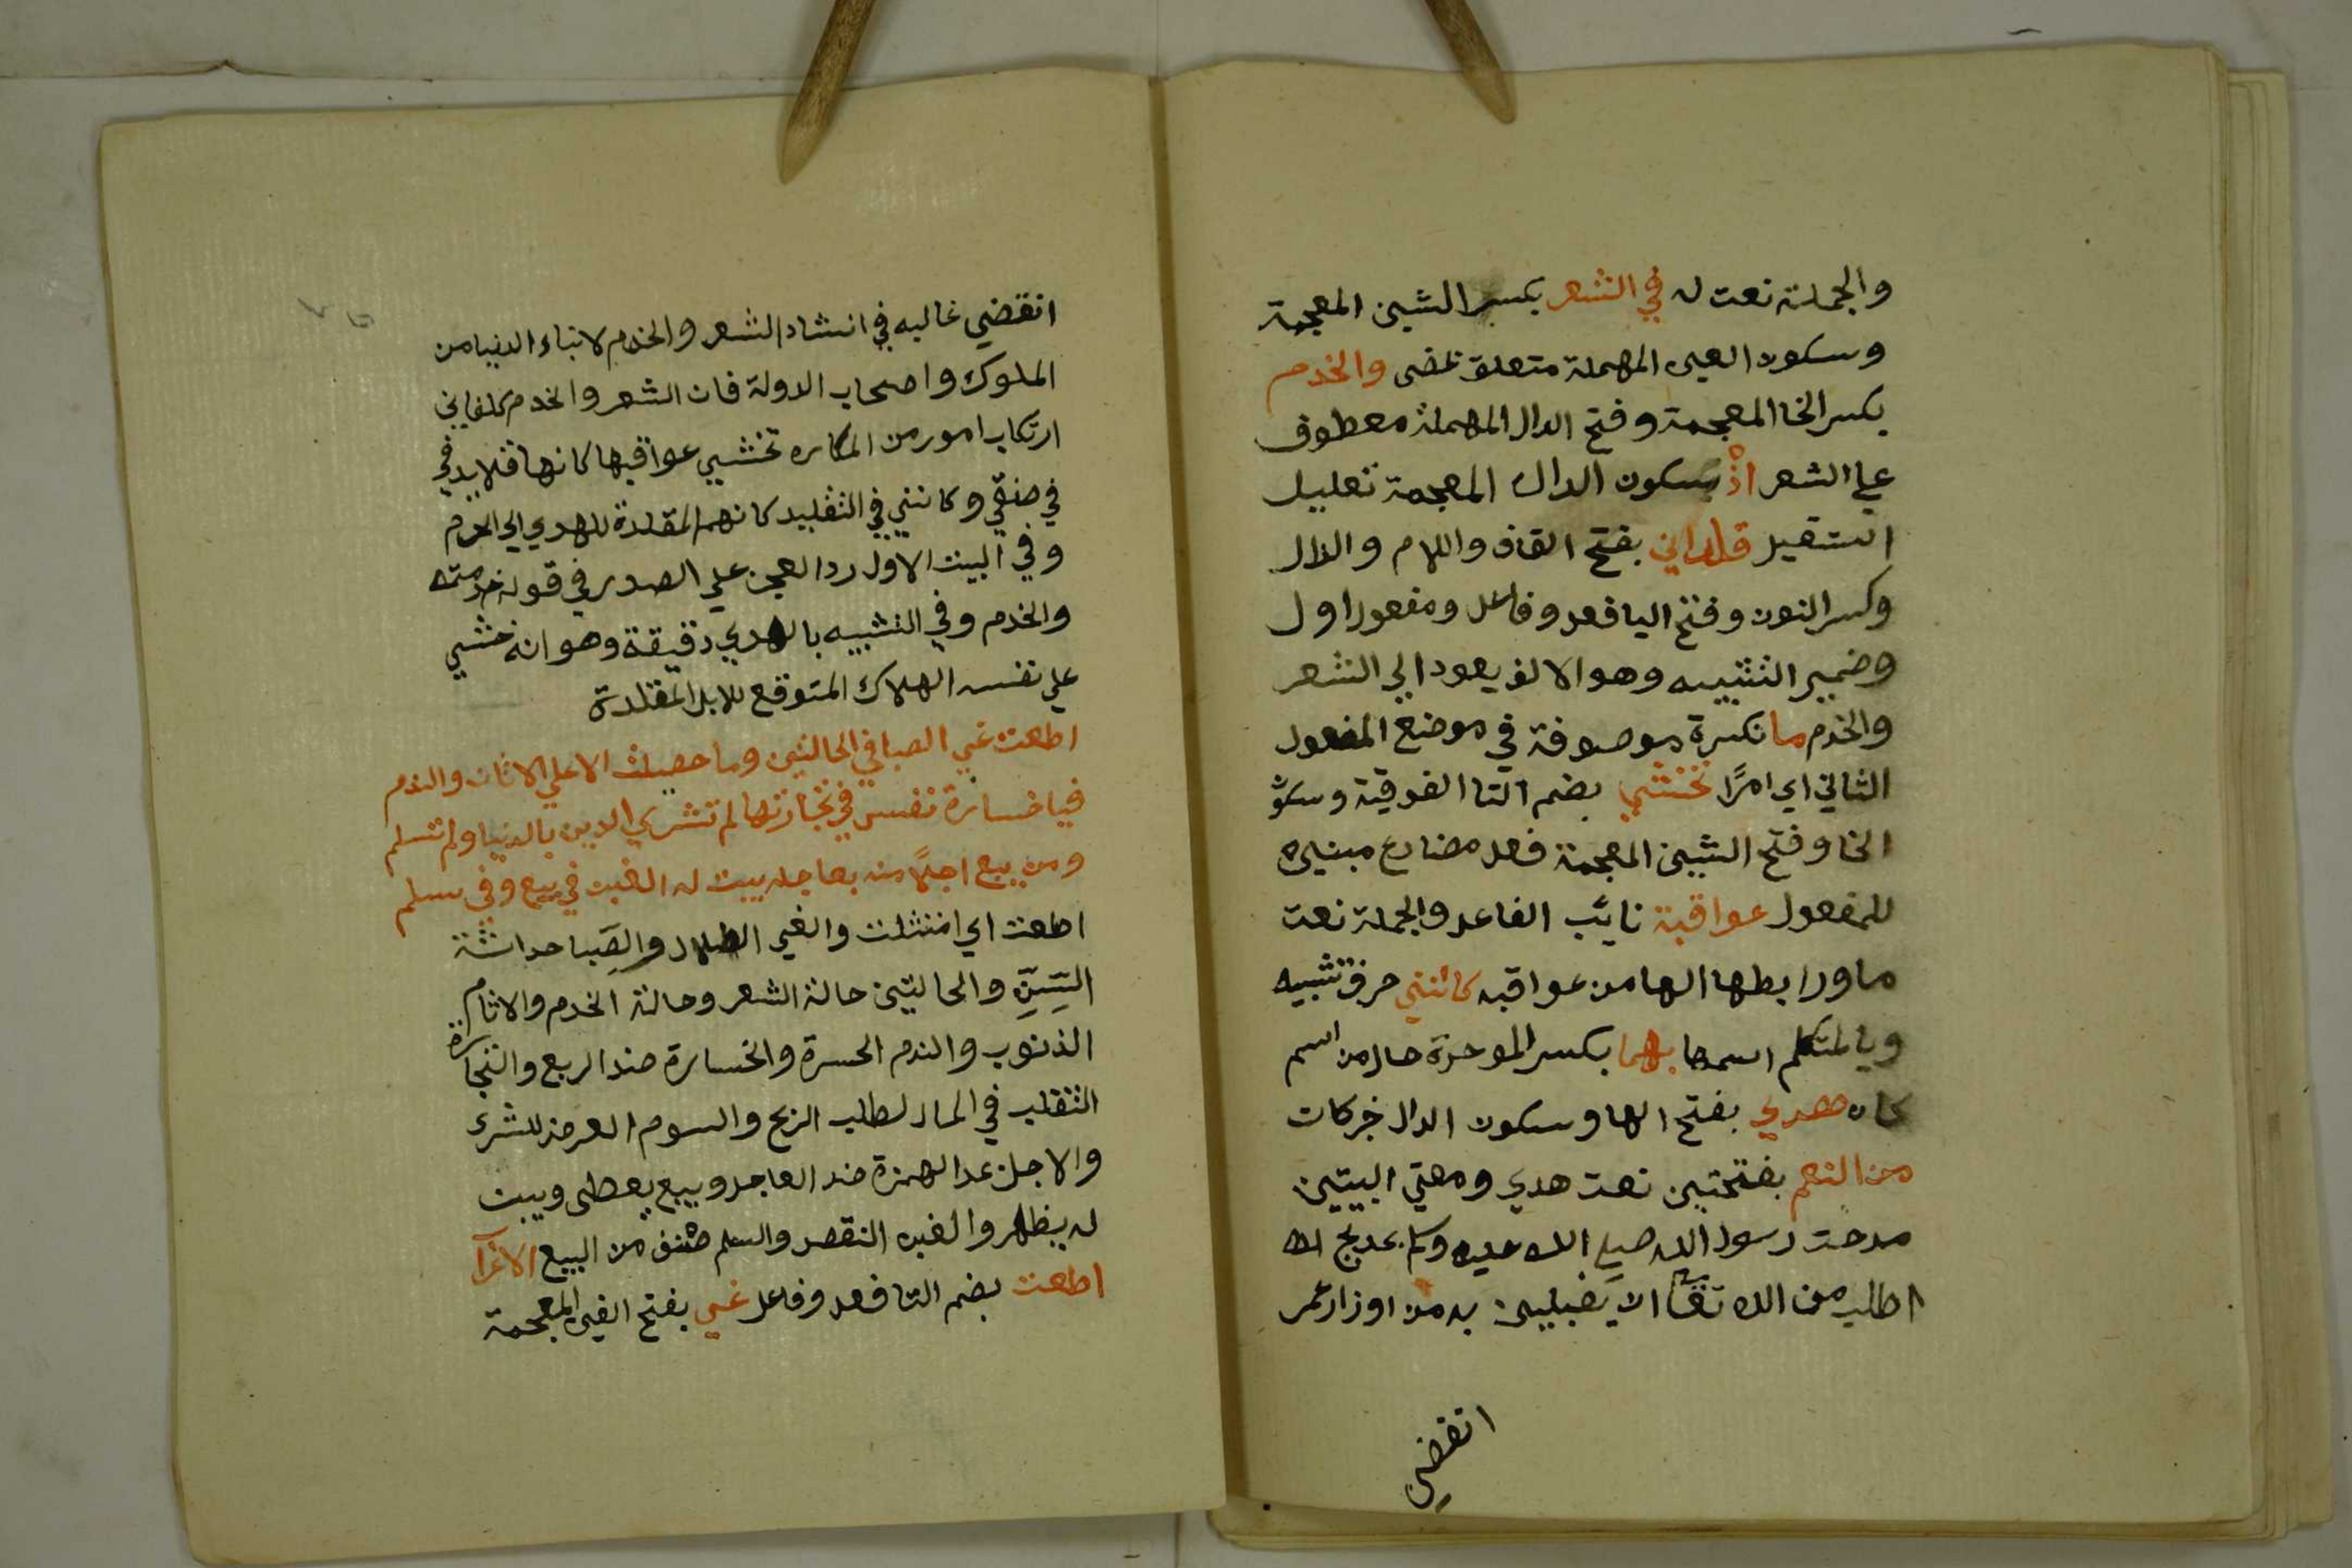 والجملة نعت له في الشعر بكسر الشين المعجمة
وسكون العين المهملة متعلق بمضى والخدم
بكسر الخا المعجمة وفتح الدال المهملة معطوف
علي الشعر اذ بسكون الدال المعجمة تعليل
استقيل قلداني بفتح القاف واللام والدال
وكسر النون وفتح اليا فعل وفاعل ومفعول اول
وضمير التثنيه وهو الالف يعود الي الشعر
والخدم ما نكرة موصوفة في موضع المفعول
الثاني اي امرًا تخشي بضم التا الفوقية وسكون
الخا وفتح الشين المعجمة فعل مضارع مبني
للمفعول عواقبة نائب الفاعل والجملة نعت
ما ورابطها الها من عواقبه كانني حرف تشبيه
ويا المتكلم اسمها بهما بكسر الموحدة حال من اسم
كان هدي بفتح الها وسكون الدال خبر كان
من النعم بفتحتين نعت هدي ومعني البيتين
مدحت رسول الله صلي الله عليه وسلم بمديح
اطلب من الله تعالي الا به من اوزار عمر
انقضي
انقضي غالبه في انشاد الشعر والخدم لابناء الدنيا من
الملوك واصحاب الدولة فان الشعر والخدم كلفاني
ارتكاب امور من المكاره تخشي عواقبها كانها قلايد في
في عنقي وكانني في التقليد كانهما المقلدة للهدي الي الحرم
وفي البيت الاول رد العجز علي الصدر في قوله خدمته
والخدم وفي التشبيه بالهدي دقيقة وهو انه خشي
علي نفسه الهلاك المتوقع للابل المقلدة
اطعت غي الصبا في الحالتين وما حصلت الا علي الاثام والندم
فيا خسارة نفس في تجارتها لم تشتري الدين بالدنيا ولم تسلم
ومن يبع اجلًا منه بعاجله يبن له الغبن في بيع وفي سلم
اطعت اي امتثلت والغي الضلال والصِبا حداثة
السِنِّ والحالتين حالة الشعر وحالة الخدم والاثام
الذنوب والندم الحسرة والخسارة ضد الربح والتجارة
التقلب في المال لطلب الربح والسوم العرض للشرا
والاجل بمد الهمزة ضد العاجل ويبع يعطى ويبن
له يظهر والغبن النقص والسلم صنف من البيع الاعراب
اطعت بضم التا فعل وفاعل غي بفتح الغين المعجمة